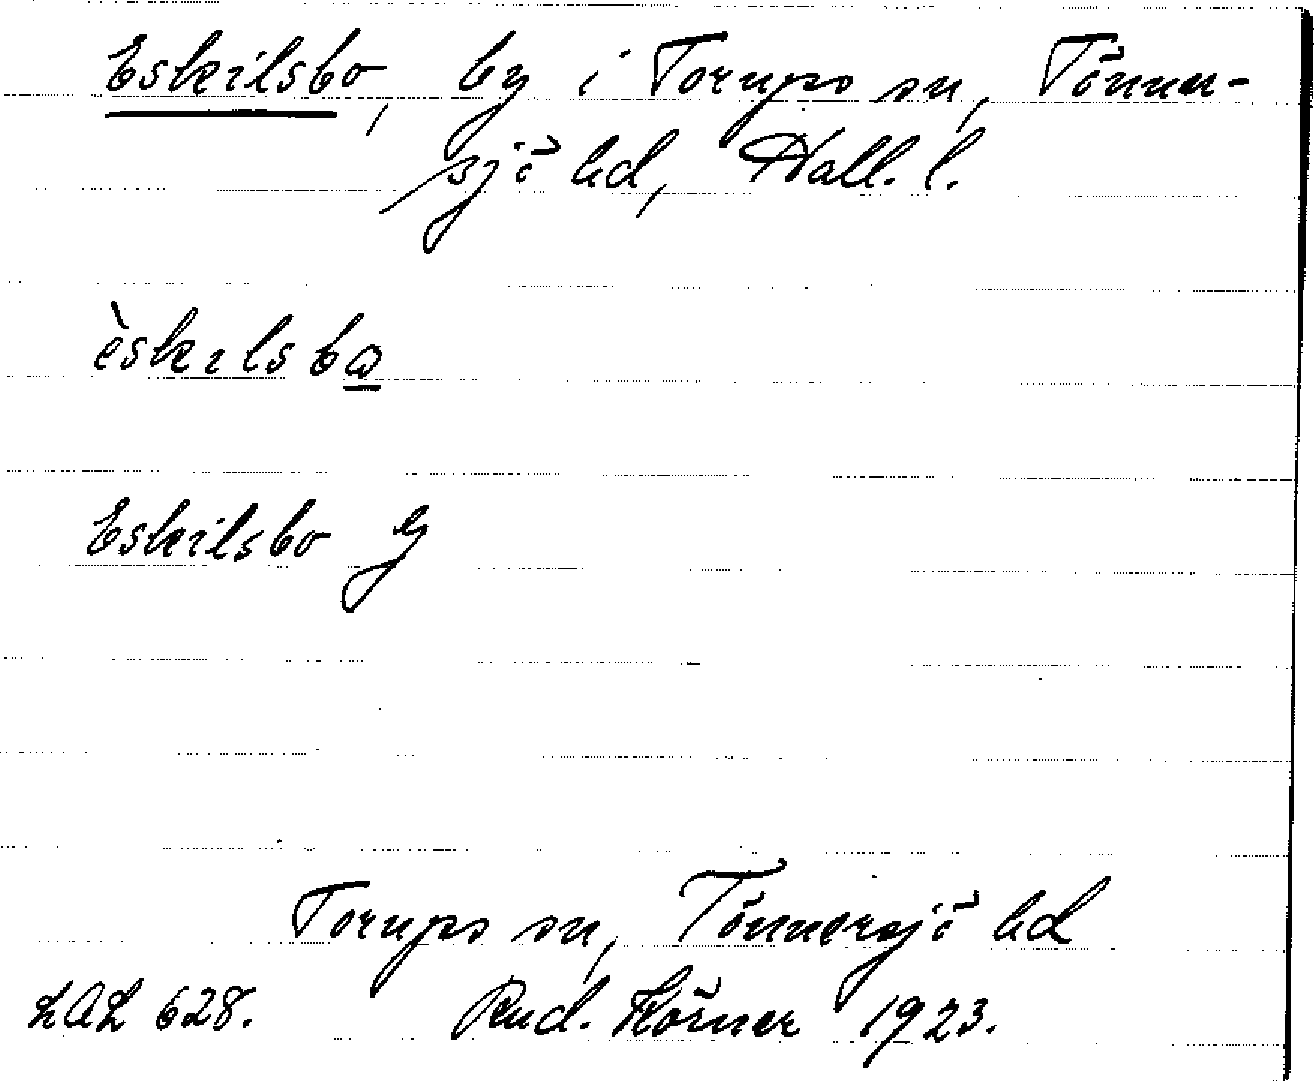 Eskilsbo, by i Torups sn, Tönner-
sjö hd, Hall. l.
èskɩlsbɷ
Eskilsbo
Torups sn, Tönnersjö hd
LAL 628. Rud. Körner 1923.